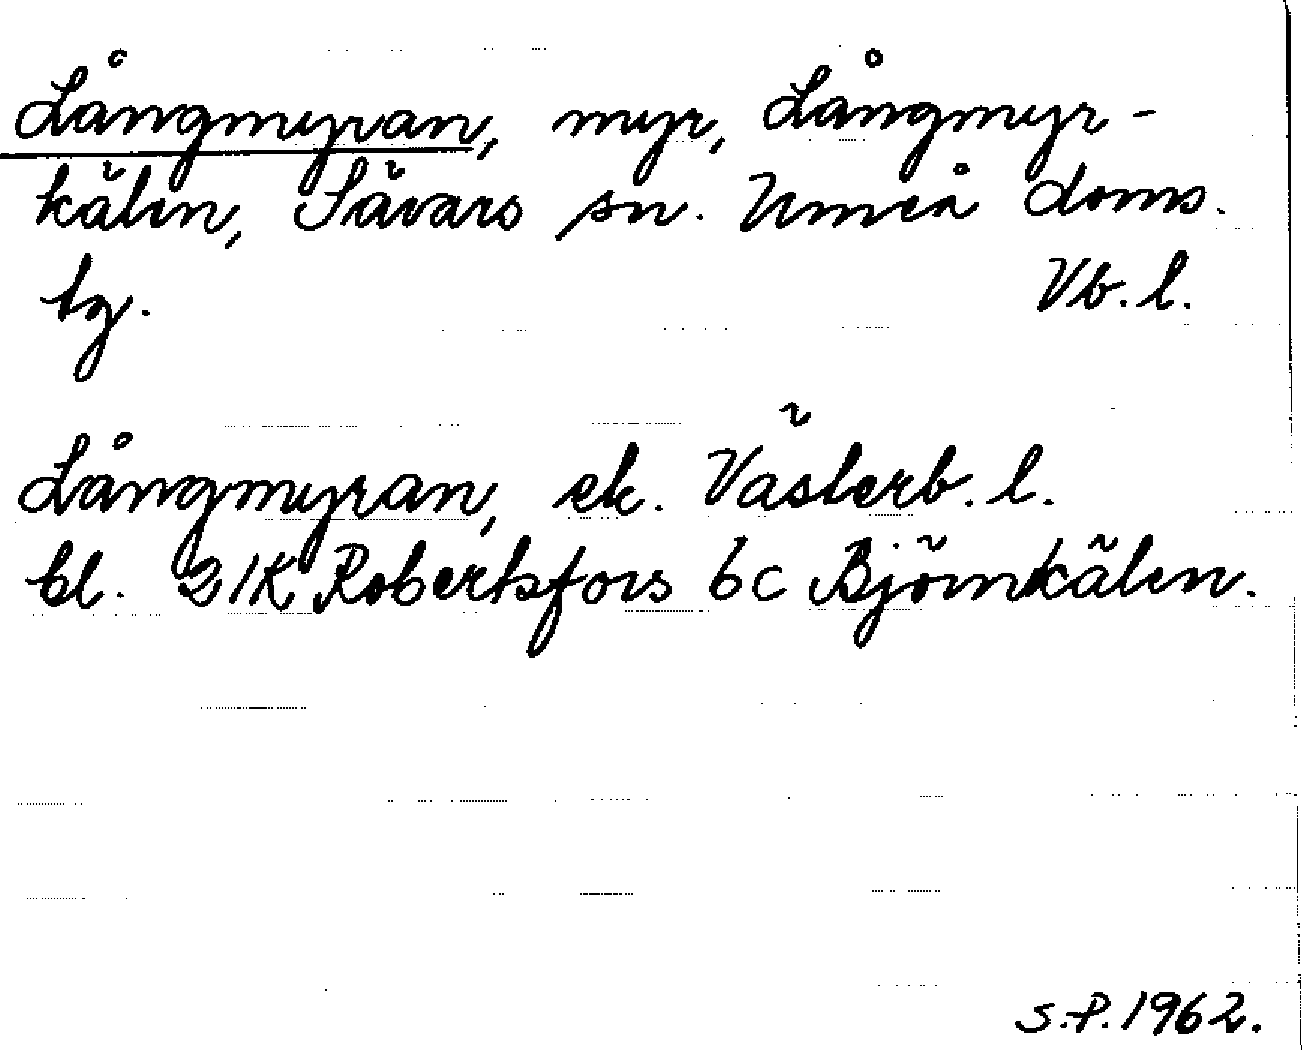 Långmyran, myr, Långmyr-
kälen, Sävars sn. Umeå doms.
tg. Vb. l.
Långmyran, ek. Västerb. l.
bl. 21K Robertsfors 6c Björnkälen.
S.P. 1962.